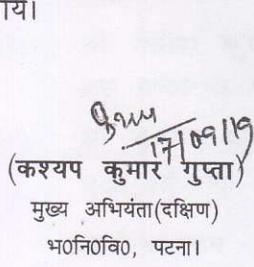 याय।
17/09/19
(कश्यप कुमार गुप्ता)
मुख्य अभियंता(दक्षिण)
भ0नि0वि0, पटना।